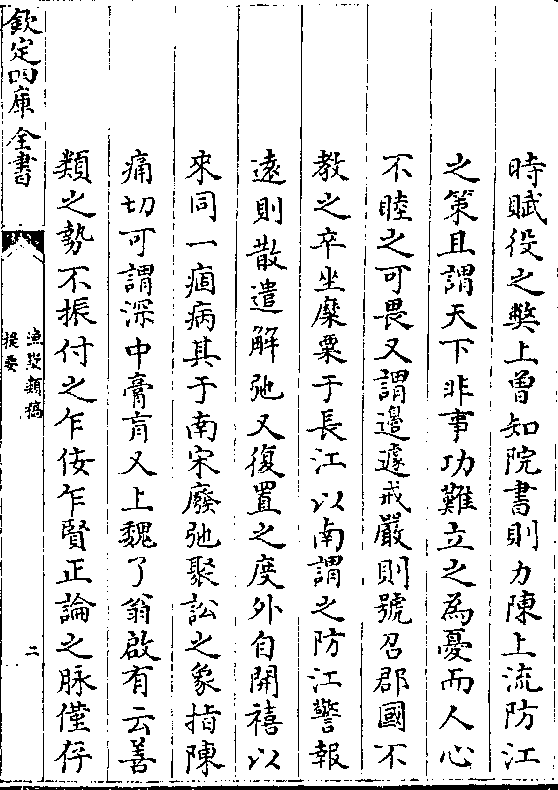 時賦役之弊上曾知院書則力陳上流防江
之策且謂天下非事功難立之為憂而人心
不睦之可畏又謂邉遽戒嚴則號召郡國不
教之卒坐糜粟于長江以南謂之防江警報
逺則散遣解弛又復置之度外自開禧以
來同一痼病其于南宋廢弛聚訟之象指陳
痛切可謂深中膏肓又上魏了翁啟有云善
類之勢不振付之乍佞乍賢正論之脉僅存
欽定四庫全書
漁墅類稿
提要
二